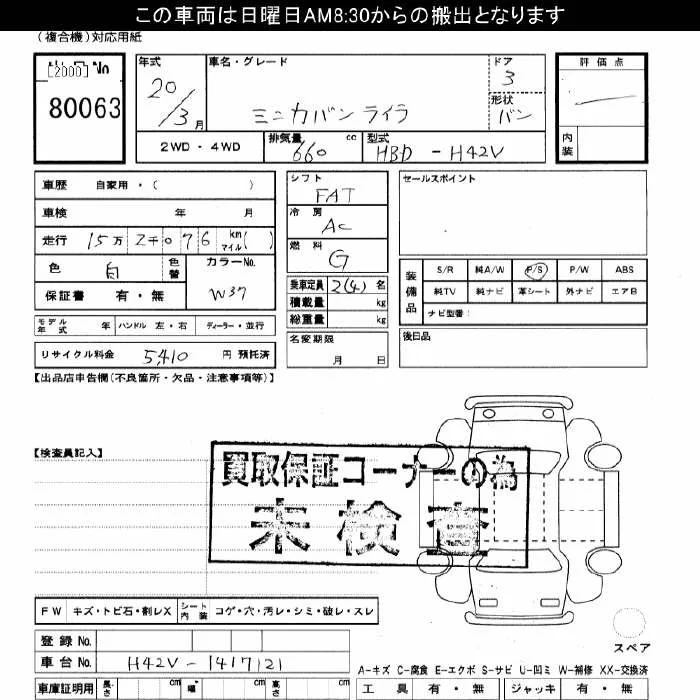 この車両は日曜日AM8:30からの搬出となります
(複合機)対応用紙
[2000] No
80063
年式
20/3月
車名・グレード
ミニカバン ライラ
ドア
3
形状
バン
評価点
内装
2WD・4WD
排気量
660 cc
型式
HBD - H42V
車歴 自家用・( )
車検 年 月
走行 15万2千076 km マイル( )
色 白 色替
カラーNo.
W37
保証書 有・無
モデル年式 年 ハンドル 左・右 ディーラー・並行
リサイクル料金 5,410 円 預託済
シフト
FAT
冷房
AC
燃料
G
乗車定員 2(4) 名
積載量 kg
総重量 kg
名変期限
月 日
セールスポイント
装備品
S/R 純A/W P/S P/W ABS
純TV 純ナビ 革シート 外ナビ エアB
ナビ型番:
後日品
【出品店申告欄(不良箇所・欠品・注意事項等)】
【検査員記入】
買取保証コーナーの為
未検査
FW キズ・トビ石・割レX シート内装 コゲ・穴・汚レ・シミ・破レ・スレ
スペア
登録No.
車台No. H42V-1417121
車庫証明用 長さ cm 幅 cm 高さ cm
A-キズ C-腐食 E-エクボ S-サビ U-凹ミ W-補修 XX-交換済
工具 有・無 ジャッキ 有・無